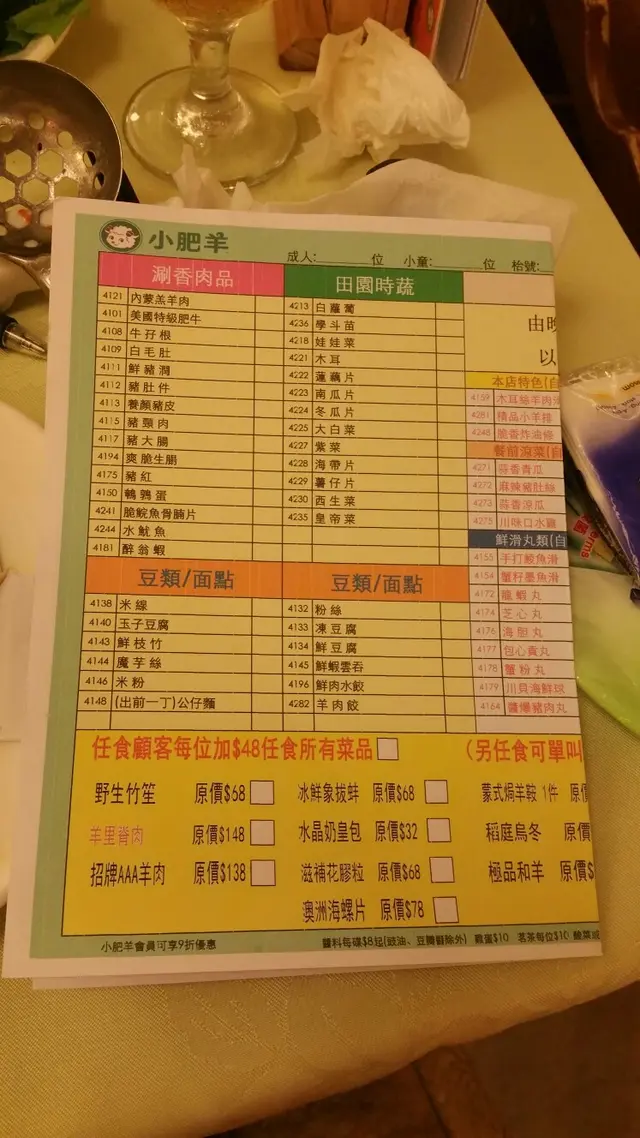 小肥羊
成人:______位 小童:______位 枱號:
涮香肉品
4121 內蒙羔羊肉
4101 美國特級肥牛
4108 牛孖根
4109 白毛肚
4111 鮮豬潤
4112 豬肚件
4113 養顏豬皮
4115 豬頸肉
4117 豬大腸
4194 爽脆生腸
4175 豬紅
4150 鵪鶉蛋
4241 脆鯇魚骨腩片
4244 水魷魚
4181 醉翁蝦
田園時蔬
4213 白蘿蔔
4236 學斗苗
4218 娃娃菜
4221 木耳
4222 蓮藕片
4223 南瓜片
4224 冬瓜片
4225 大白菜
4227 紫菜
4228 海帶片
4229 薯仔片
4230 西生菜
4235 皇帝菜
由晚
以
本店特色(自
4159 木耳絲羊肉
4281 精品小羊排
4248 脆香炸油條
餐前涼菜(自
4271 蒜香青瓜
4272 麻辣豬肚絲
4273 蒜香涼瓜
4275 川味口水雞
鮮滑丸類(自
4155 手打鯪魚滑
4154 蟹籽墨魚滑
4172 龍蝦丸
4174 芝心丸
4176 海膽丸
4177 包心貢丸
4178 蟹粉丸
4179 川貝海鮮球
4164 醬爆豬肉丸
豆類/面點
4138 米線
4140 玉子豆腐
4143 鮮枝竹
4144 魔芋絲
4146 米粉
4148 (出前一丁)公仔麵
豆類/面點
4132 粉絲
4133 凍豆腐
4134 鮮豆腐
4145 鮮蝦雲吞
4196 鮮肉水餃
4282 羊肉餃
任食顧客每位加$48任食所有菜品 (另任食可單叫
野生竹笙 原價$68 冰鮮象拔蚌 原價$68 蒙式焗羊鞍 1件 原
羊里脊肉 原價$148 水晶奶皇包 原價$32 稻庭烏冬 原價
招牌AAA羊肉 原價$138 滋補花膠粒 原價$68 極品和羊 原價$
澳洲海螺片 原價$78
小肥羊會員可享9折優惠 醬料每碟$8起(豉油、豆瓣醬除外) 雞蛋$10 茗茶每位$10